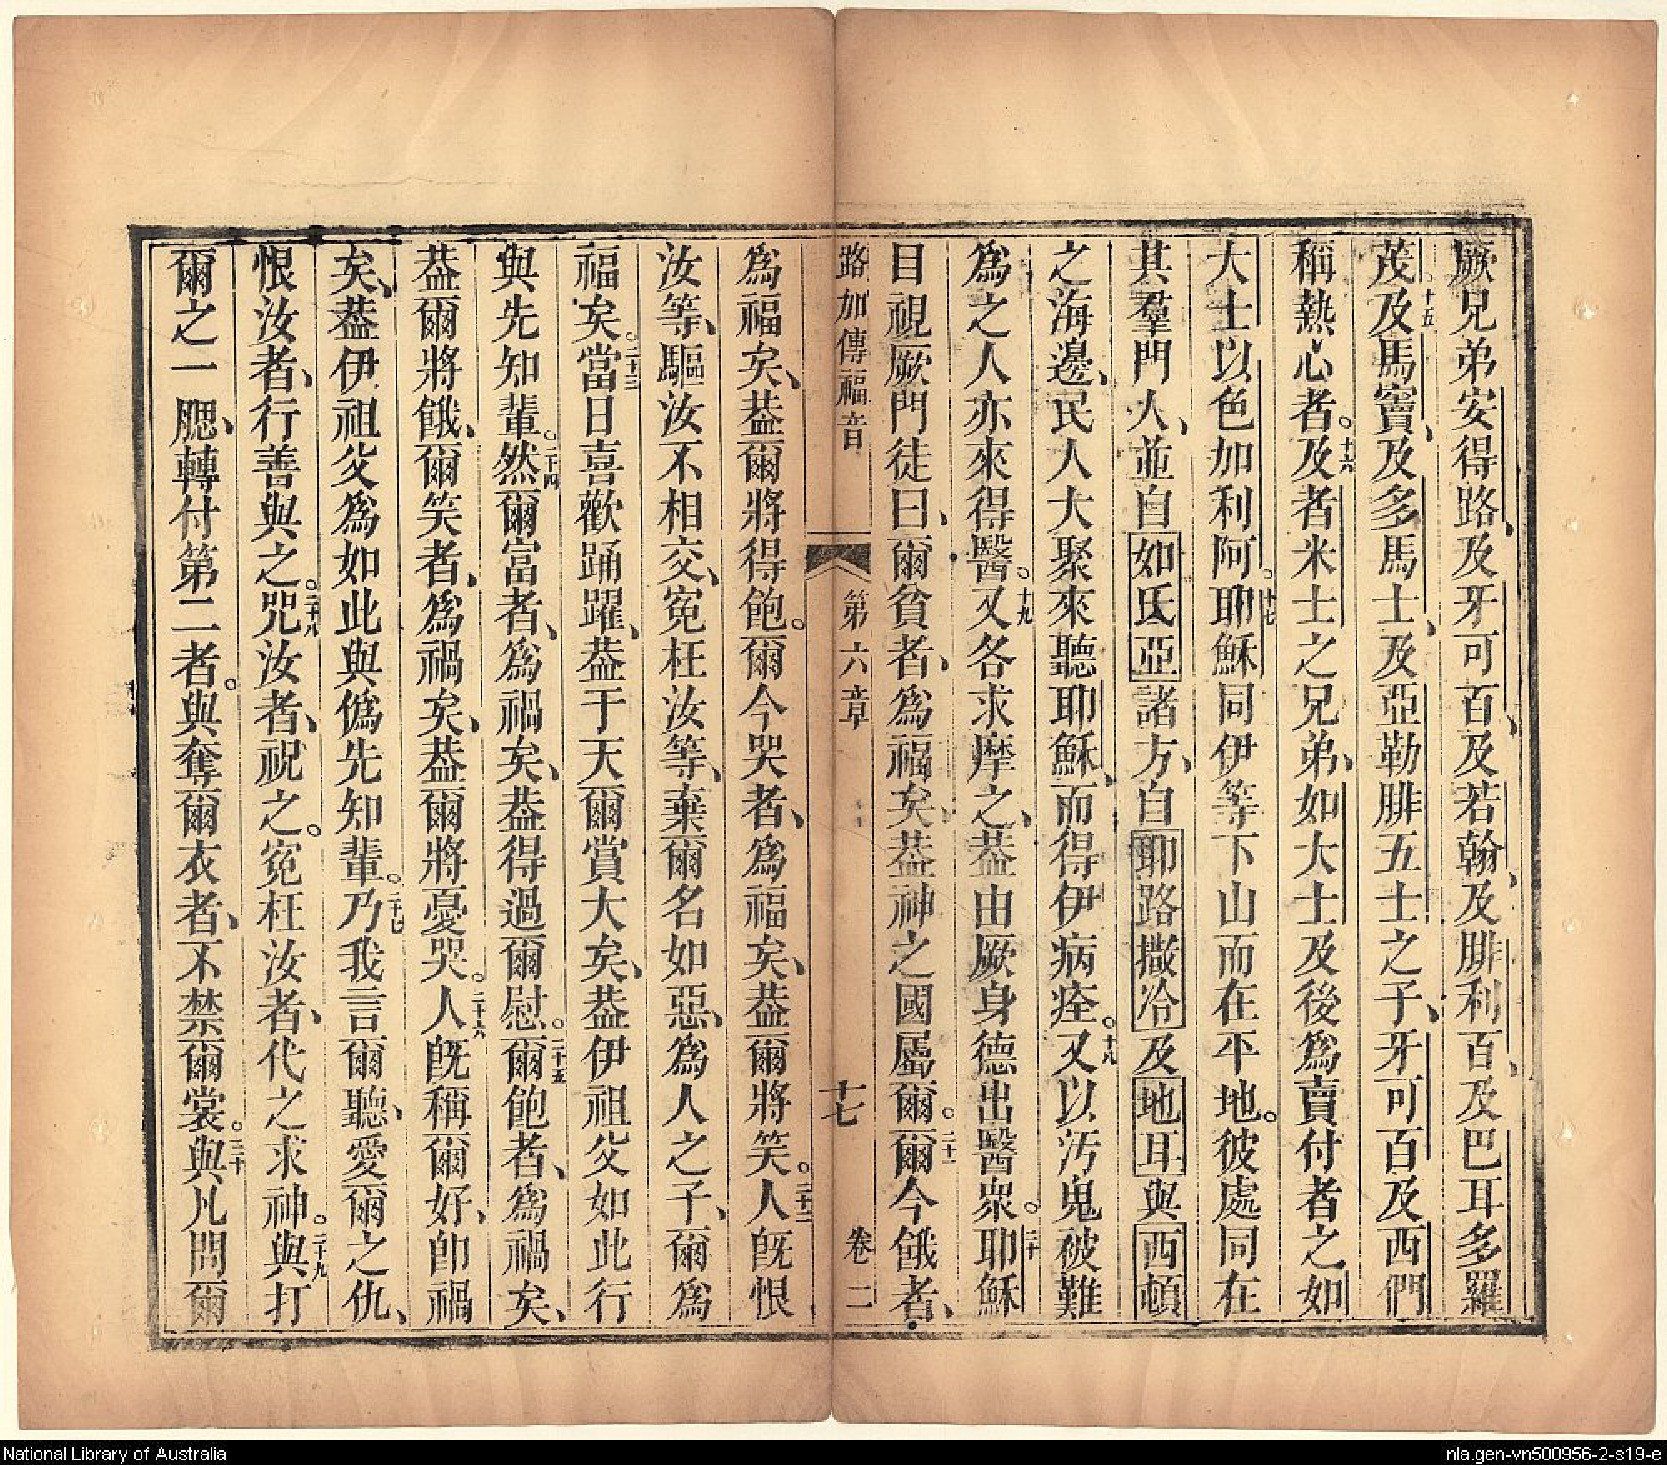 厥兄弟安得路、及牙可百、及若翰、及腓利百、及巴耳多羅
茂。十五及馬竇、及多馬士、及亞勒腓五士之子、牙可百及西們
稱熱心者。十六及者米士之兄弟、如大士及後爲賣付者之如
大士以色加利阿。十七耶穌同伊等下山而在平地。彼處同在
其羣門人、並自如氐亞諸方、自耶路撒冷及地耳與西頓
之海邊、民人大聚來聽耶穌、而得伊病痊。十八又以汚鬼被難
爲之人亦來得醫。十九又各求摩之、葢由厥身德出醫衆。二十耶穌
目視厥門徒曰、爾貧者、爲福矣、葢神之國屬爾。二十一爾今餓者、
路加傳福音 第六章 十七 卷二
爲福矣、葢爾將得飽。爾今哭者、爲福矣、葢爾將笑。二十二人旣恨
汝等、驅汝不相交、寃枉汝等、棄爾名如惡、爲人之子、爾爲
福矣。二十三當日喜歡踊躍、葢于天爾賞大矣、葢伊祖父如此行
與先知輩。二十四然爾富者、爲禍矣、葢得過爾慰。二十五爾飽者、爲禍矣、
葢爾將餓、爾笑者、爲禍矣、葢爾將憂哭。二十六人旣稱爾好、卽禍
矣、葢伊祖父爲如此與僞先知輩。二十七乃我言爾聽、愛爾之仇、
恨汝者、行善與之。二十八咒汝者、祝之。寃枉汝者、代之求神。二十九與打
爾之一腮、轉付第二者。與奪爾衣者、不禁爾裳。三十與凡問爾
National Library of Australia
nla.gen-vn500956-2-s19-e